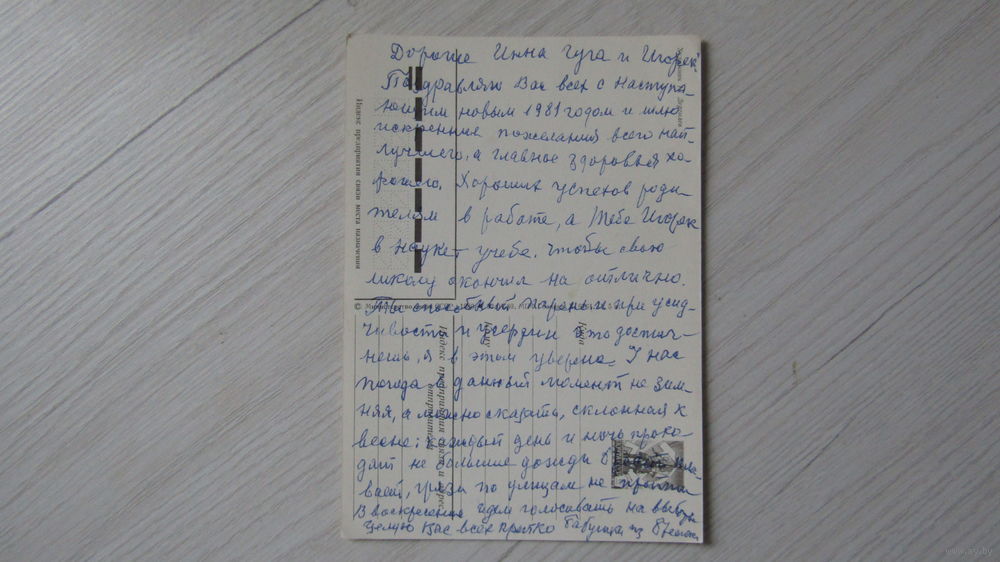 Дорогие Инна Гуга и Игорек
Поздравляю Вас всех с наступа-
ющим новым 1981 годом и шлю
искренние пожелания всего най-
лучшего, а главное здоровья хо-
рошего. Хороших успехов роди-
телям в работе, а тебе Игорек
в науке – учебе. чтобы свою
школу окончил на отлично.
Ты способный парень и при усид-
чивости и усердии это достиг-
нешь, я в этом уверена. У нас
погода в данный момент не зим-
няя, а можно сказать, склонная к
весне: каждый день и ночь прохо-
дят не большие дожди
вает, грязь по улицам не пройти
В воскресение идем голосовать на выборы
Целую Вас всех крепко Бабушка из
Индекс предприятия связи места назначения
© Министерство связи
Куда
Кому
Индекс предприятия связи и адрес
отправителя
www.ay.by